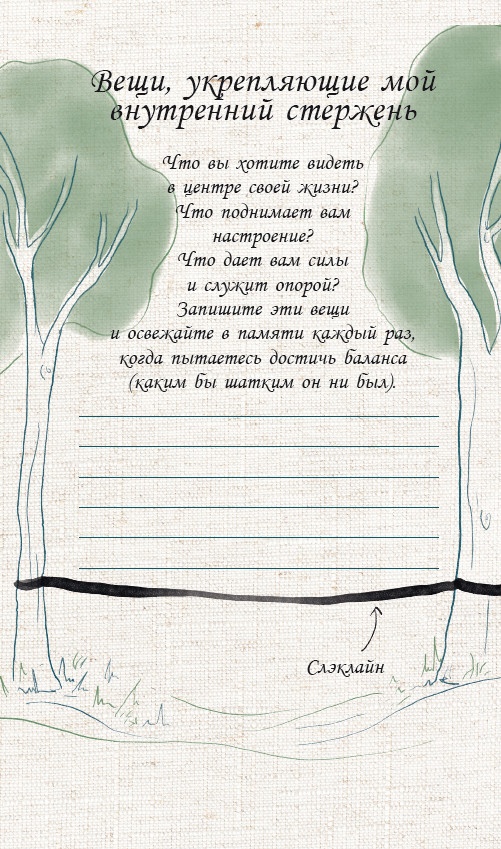 Вещи, укрепляющие мой
внутренний стержень
Что вы хотите видеть
в центре своей жизни?
Что поднимает вам
настроение?
Что дает вам силы
и служит опорой?
Запишите эти вещи
и освежайте в памяти каждый раз,
когда пытаетесь достичь баланса
(каким бы шатким он ни был).
Слэклайн